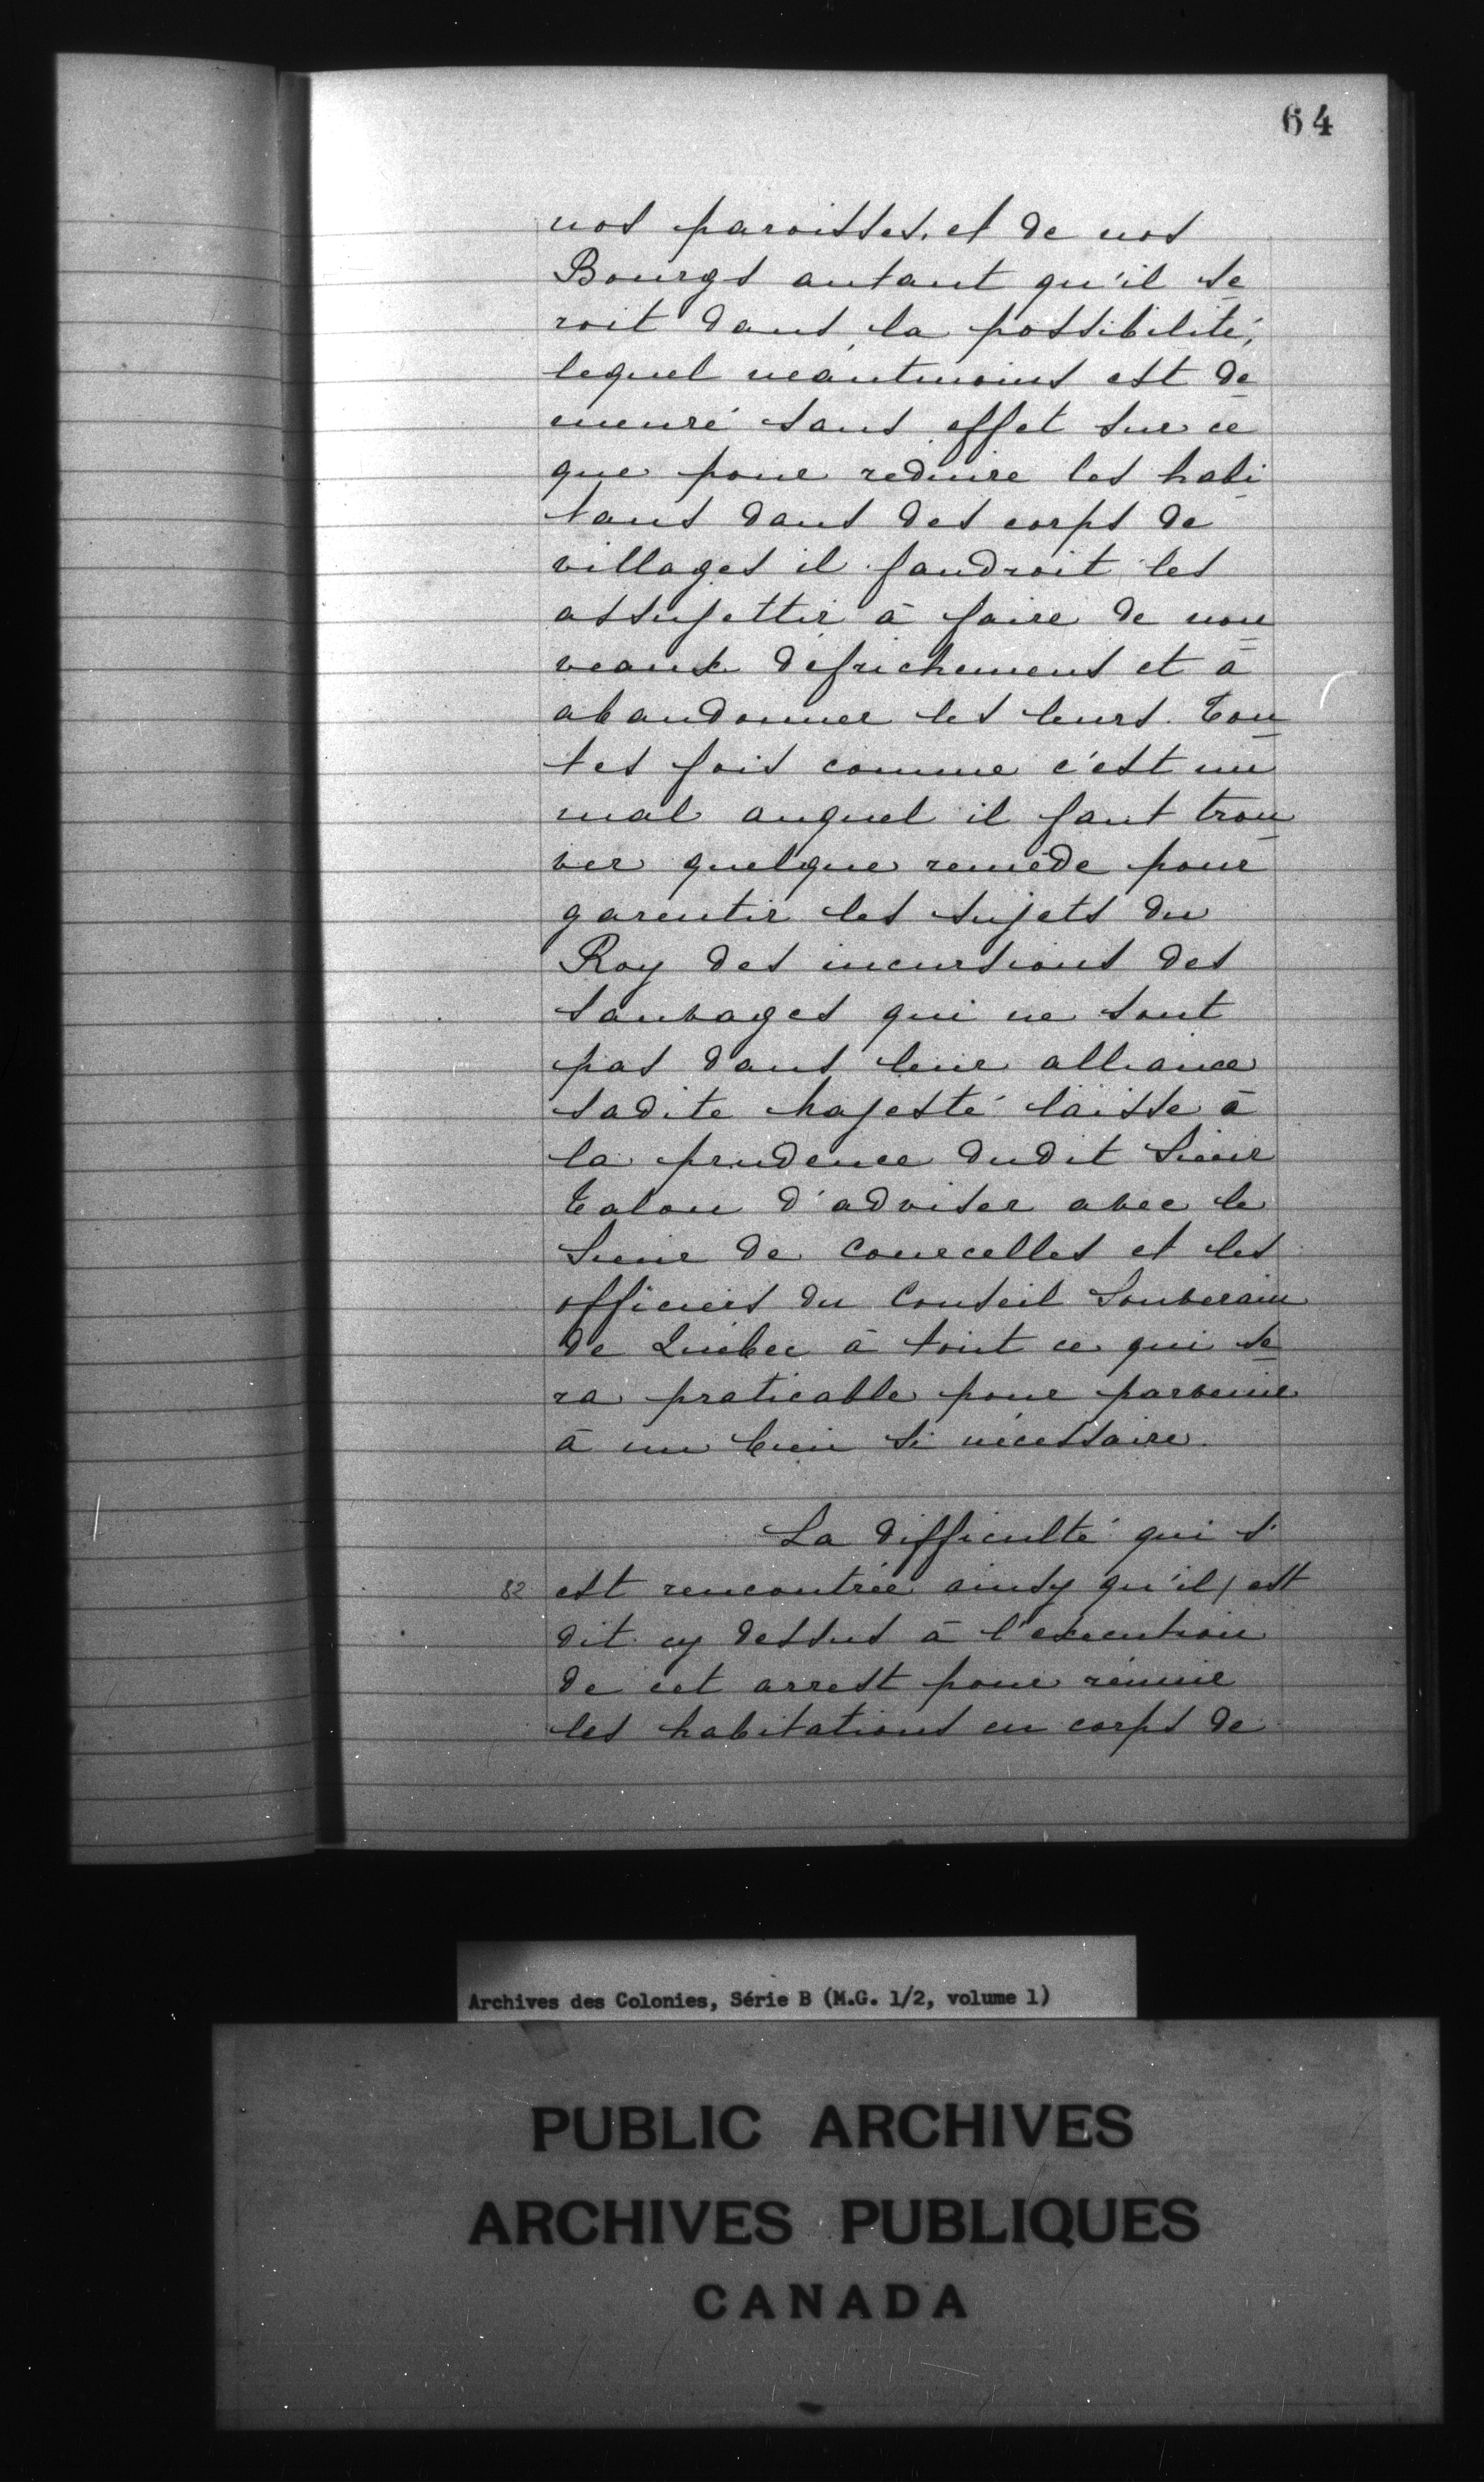 64
nos paroisses, et de nos
Bourgs autant qu'il se
roit dans la possibilité,
lequel néantmoins est de
meuré sans effet sur ce
que pour reduire les habi
tans dans des corps de
villages il faudroit les
assujettir à faire de nou
veaux défrichemens et à
abandonner les leurs. Tou
tes fois comme c'est un
mal auquel il faut trou
ver quelque remède pour
garentir les sujets du
Roy des incursions des
Sauvages qui ne sont
pas dans leur alliance
Sadite Majesté laisse à
la prudence dudit Sieur
Talon d'adviser avec le
Sieur de Courcelles et les
officiers du Conseil Souverain
de Québec à tout ce qui se
ra praticable pour parvenir
à un bien si nécessaire.
La difficulté qui s'
82 est rencontrée ainsy qu'il est
dit cy dessus à l'execution
de cet arrest pour réunir
les habitations en corps de
Archives des Colonies, Série B (M.G. 1/2, volume 1)
PUBLIC ARCHIVES
ARCHIVES PUBLIQUES
CANADA